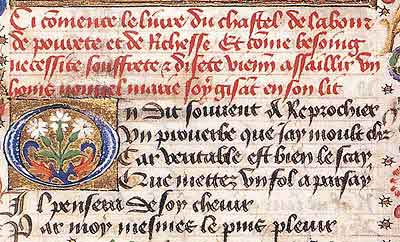 Ci comence le livre du chastel de labour
de povrete et de Richesse Et come besoing
necessite souffrete & disete vienn assaillir vn
homs nouuel marie soy gisat en son lit
On dit souvent & Reprochier
Vn prouerbe que jay moult chr
Car veritable est bien le scay
Que mettez vn fol a par say
Il pensera de soy cheuir
Par moy mesmes le puis pleuir